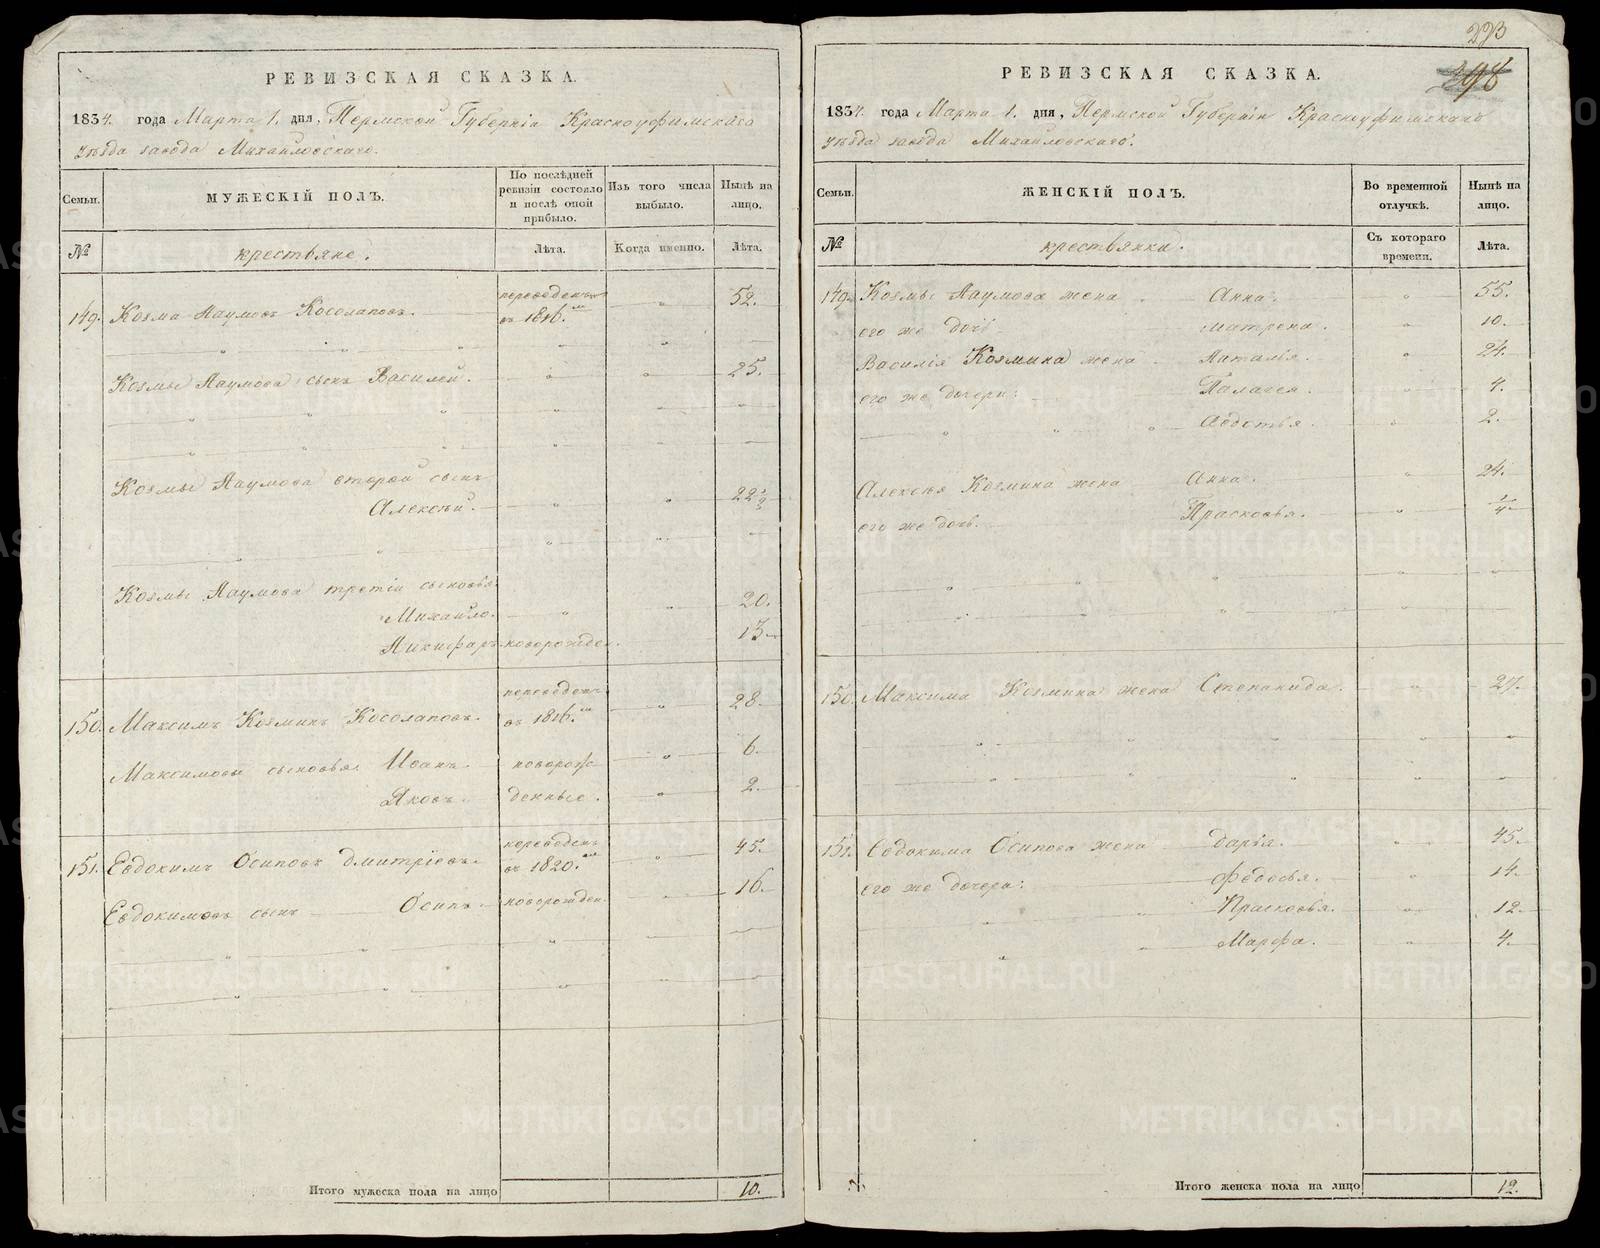 223
298
РЕВИЗСКАЯ СКАЗКА.
1834. года Марта 1. дня, Пермской Губерніи Красноуфимскаго
уѣзда завода Михайловскаго.
Семьи.
МУЖЕСКІЙ ПОЛЪ.
По послѣдней
ревизіи состояло
и послѣ оной
прибыло.
Изъ того числа
выбыло.
Нынѣ на
лицо.
№
крестьяне.
Лѣта.
Когда именно.
Лѣта.
149. Козма Наумовъ Косолаповъ. переведенъ въ 1816.мъ 52.
Козмы Наумова сынъ Василей. 25.
Козмы Наумова второй сынъ
Алексѣй. 22 1/2
Козмы Наумова третіи сыновья
Михайло. 20.
Никифаръ новорожден. 13
150. Максимъ Козминъ Косолаповъ. переведенъ въ 1816.мъ 28.
Максимовы сыновья Иванъ. новорож 6.
Яковъ. денные. 2.
151. Евдокимъ Осиповъ Дмитріевъ. переведенъ въ 1820.мъ 45.
Евдокимовъ сынъ Осипъ. новорожден. 16.
Итого мужеска пола на лицо 10.
РЕВИЗСКАЯ СКАЗКА.
1834. года Марта 1. дня, Пермской Губерніи Красноуфимскаго
уѣзда завода Михайловскаго.
Семьи.
ЖЕНСКІЙ ПОЛЪ.
Во временной
отлучкѣ.
Нынѣ на
лицо.
№
крестьянки.
Съ котораго
времени.
Лѣта.
149. Козмы Наумова жена Анна. 55.
его же дочь Матрена. 10.
Василія Козмина жена Наталья. 24.
его же дочери: Палагея. 4.
Авдотья. 2.
Алексѣя Козмина жена Анна. 24.
его же дочь. Прасковья. 1/4
150. Максима Козмина жена Степанида. 27.
151. Евдокима Осипова жена Дарья. 45.
его же дочери: Федосья. 14.
Прасковья. 12.
Марфа. 4.
Итого женска пола на лицо 12.
METRIKI.GASO-URAL.RU